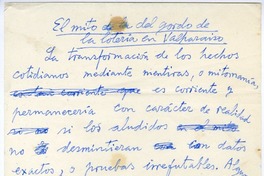 El mito del gordo de
la lotería en Valparaíso
La transformación de los hechos
cotidianos mediante mentiras, o mitomanías
es corriente y
permanecería con carácter de realidad
si los aludidos
no desmintieran con
datos
exactos, o pruebas irrefutables.